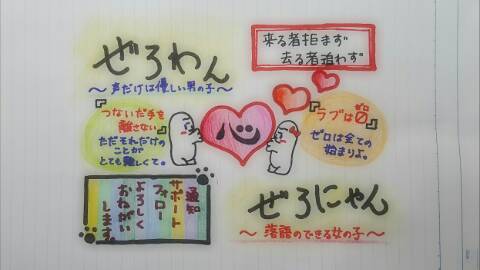 ぜろわん
〜声だけは優しい男の子〜
来る者拒まず
去る者追わず
『つないだ手を
離さない』
ただそれだけの
ことが
とても難しくて。
心
『ラブは0』
ゼロ
ゼロは全ての
始まりよ。
通知
サポート
フォロー
よろしく
おねがい
します。
ぜろにゃん
〜落語のできる女の子〜